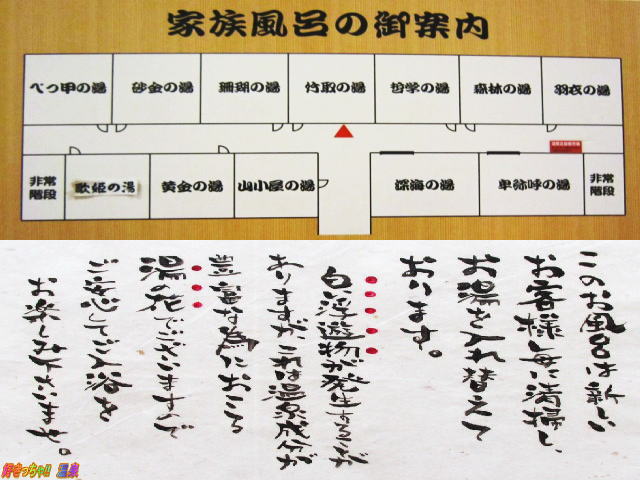 家族風呂の御案内
べっ甲の湯
砂金の湯
珊瑚の湯
竹取の湯
哲学の湯
森林の湯
羽衣の湯
非常
階段
歌姫の湯
黄金の湯
山小屋の湯
深海の湯
卑弥呼の湯
非常
階段
このお風呂は新しい
お客様毎に清掃し、
お湯を入れ替えて
おります。
白い浮遊物が発生する事が
ありますが、これは温泉成分が
豊富な為におこる
湯の花でございますので
ご安心してご入浴を
お楽しみ下さいませ。
好きっちゃ!! 温泉